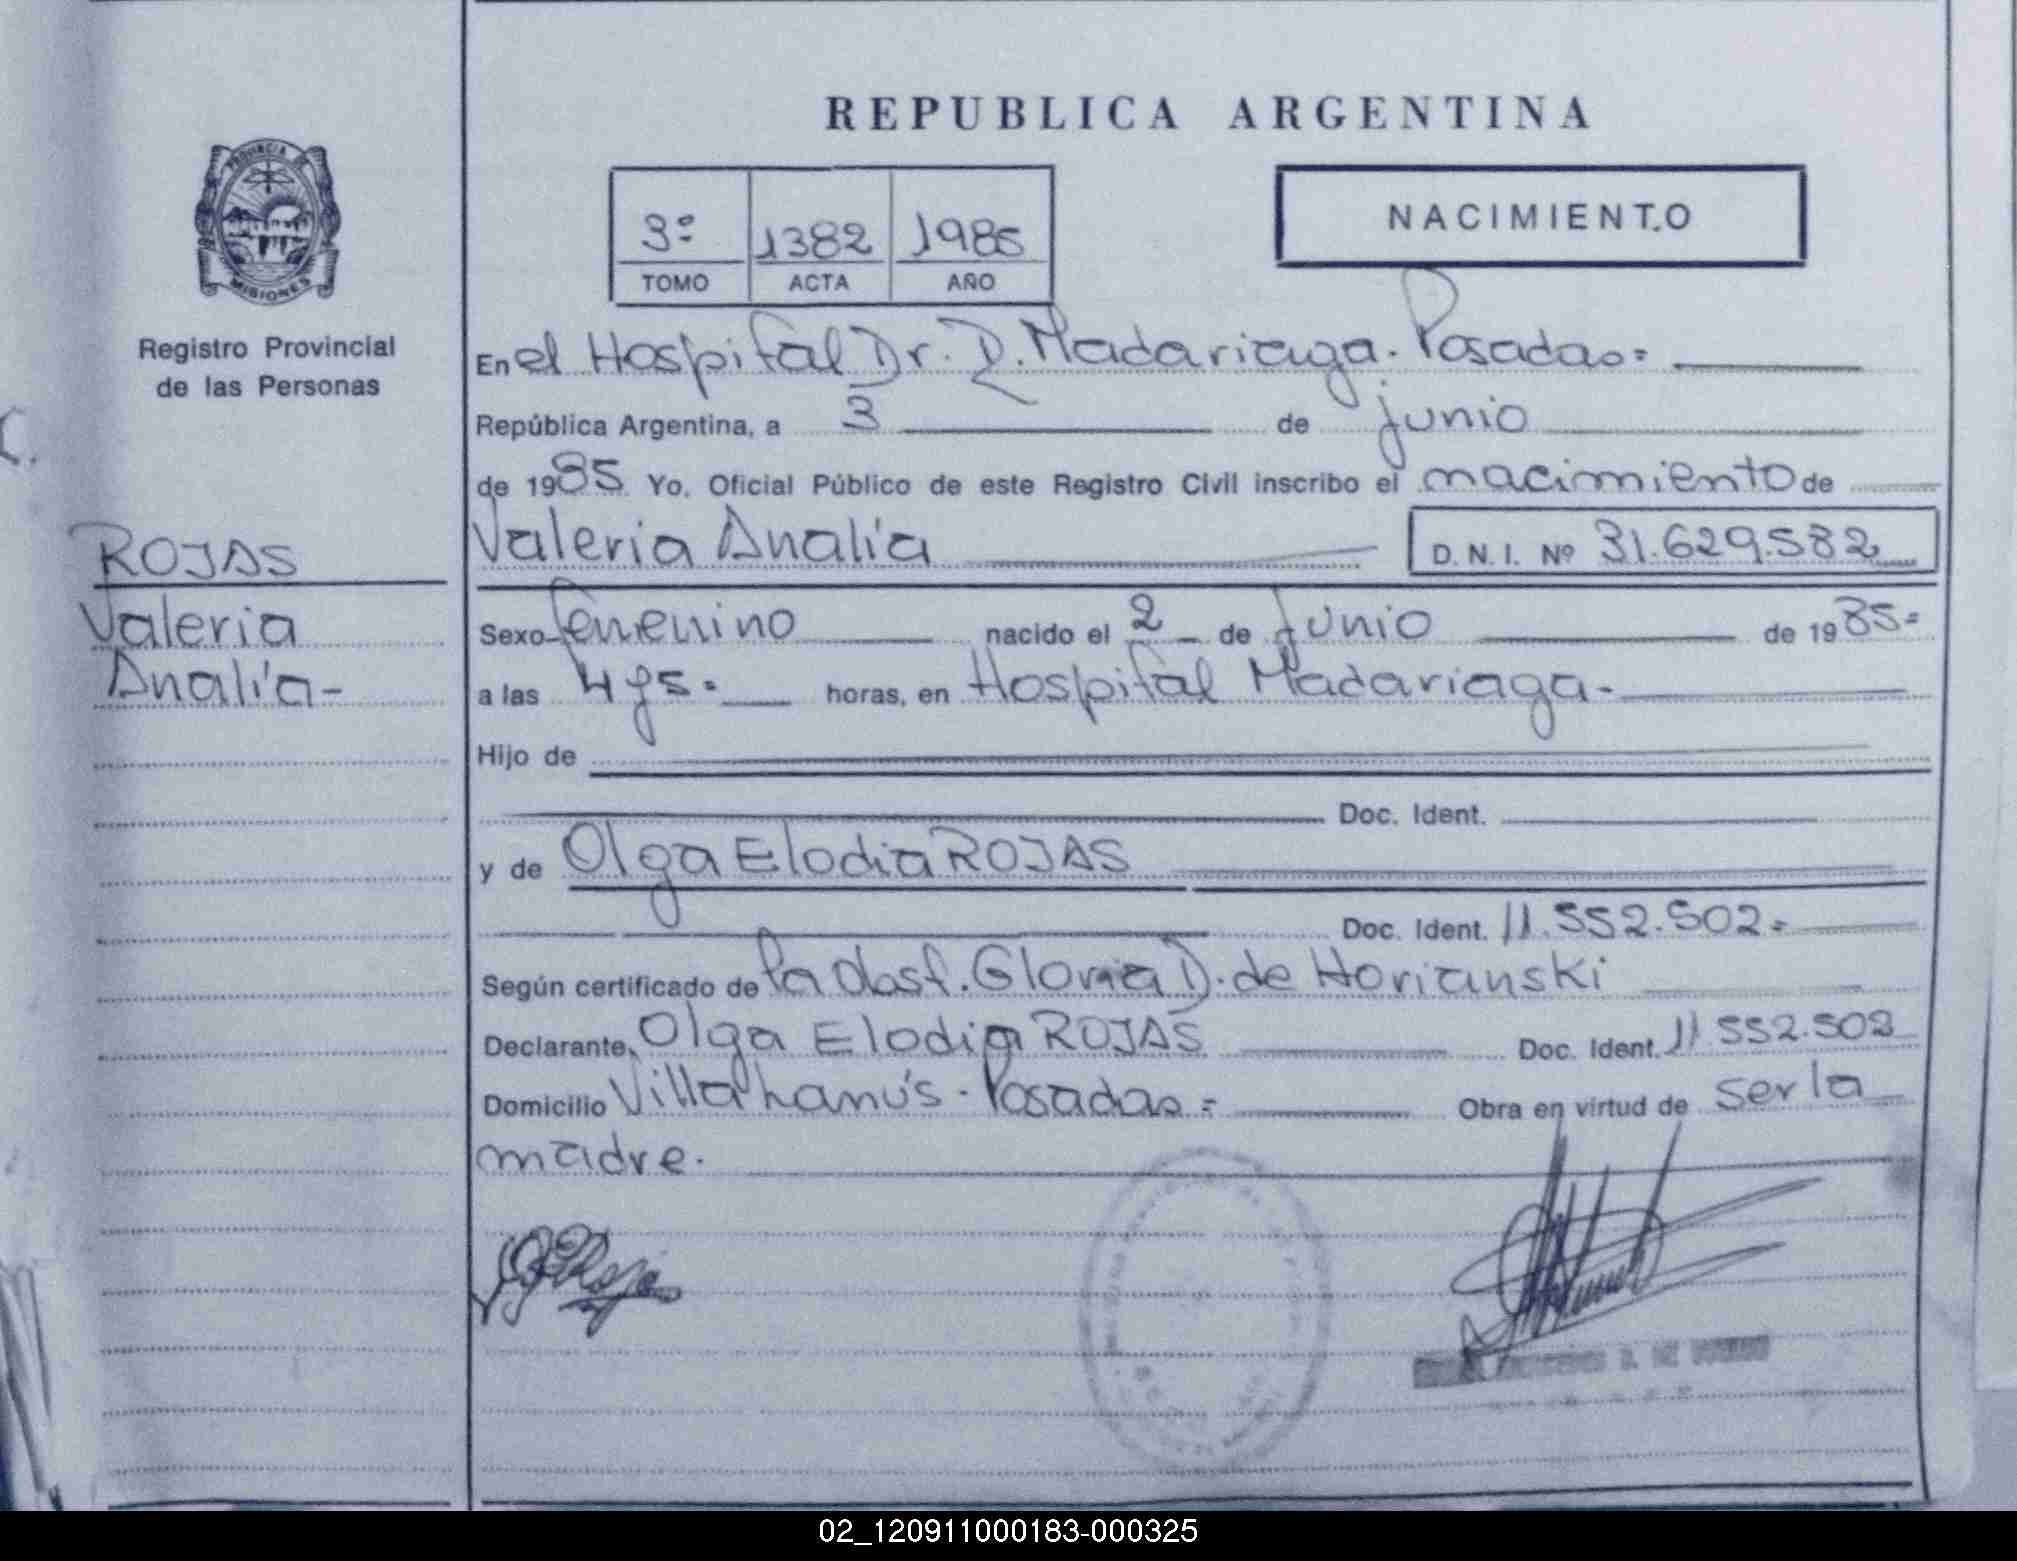 REPUBLICA ARGENTINA
PROVINCIA DE
MISIONES
Registro Provincial
de las Personas
3º 1382 1985
TOMO ACTA AÑO
NACIMIENTO
En el Hospital Dr. R. Madariaga. Posadas=
República Argentina, a 3 de junio
de 1985 Yo, Oficial Público de este Registro Civil inscribo el nacimiento de
ROJAS
Valeria
Analía-
Valeria Analía D. N. I. Nº 31.629.582
Sexo femenino nacido el 2 de Junio de 1985=
a las 4 horas, en Hospital Madariaga-
Hijo de
Doc. Ident.
y de Olga Elodia ROJAS
Doc. Ident. 11.552.502=
Según certificado de la Obst. Gloria D. de Horianski
Declarante, Olga Elodia ROJAS Doc. Ident. 11.552.502
Domicilio Villa Lanús - Posadas.= Obra en virtud de ser la
madre.
02_120911000183-000325